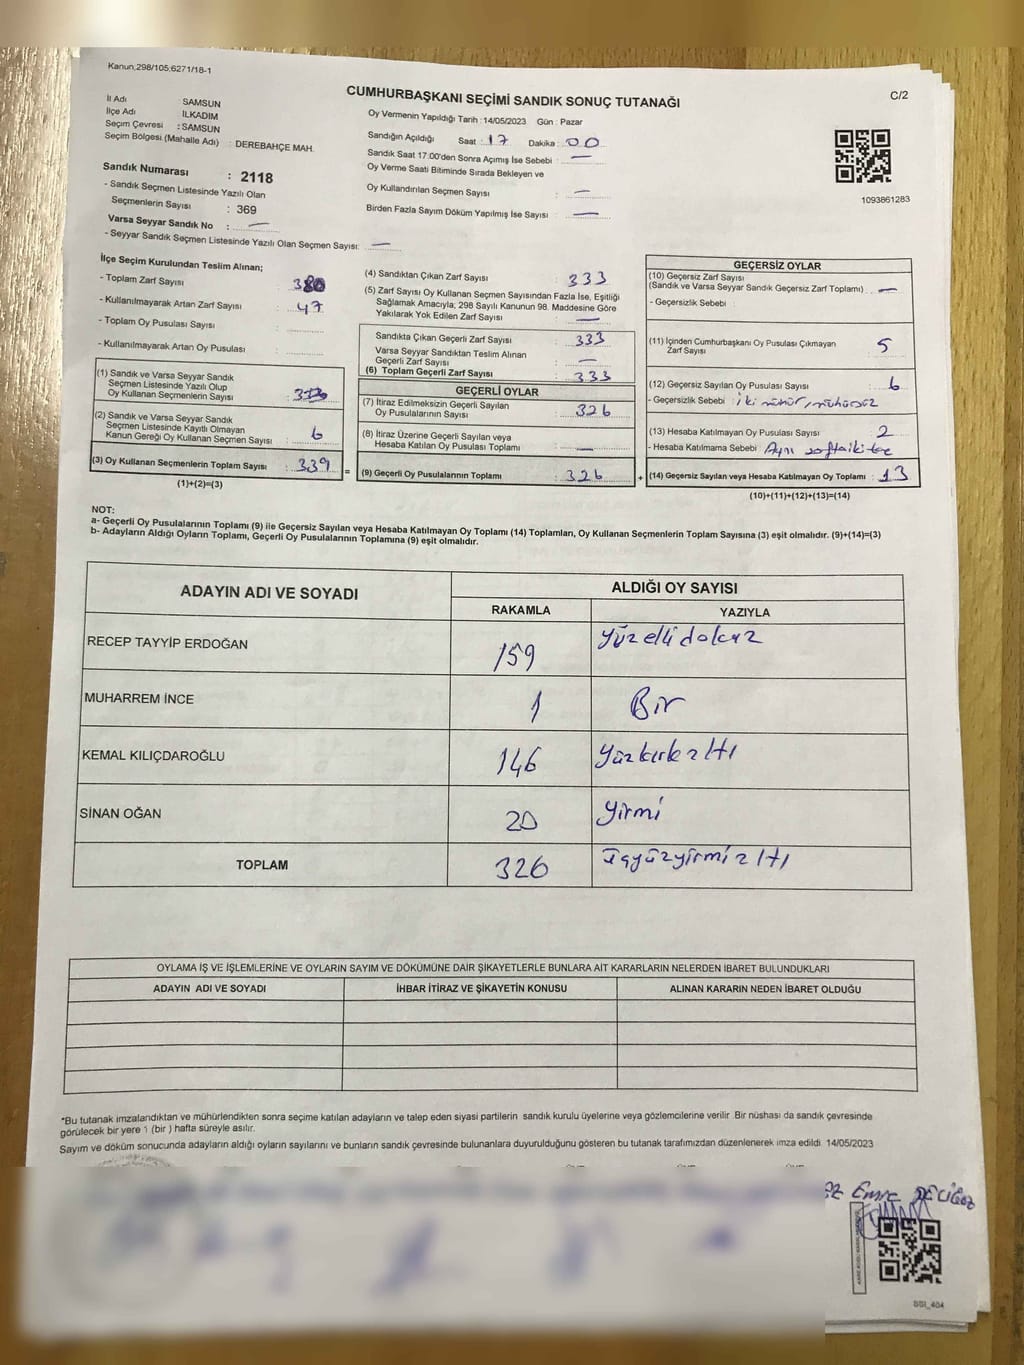 Kanun,298/105;6271/18-1
CUMHURBAŞKANI SEÇİMİ SANDIK SONUÇ TUTANAĞI
C/2
İl Adı SAMSUN
İlçe Adı İLKADIM
Seçim Çevresi : SAMSUN
Seçim Bölgesi (Mahalle Adı) : DEREBAHÇE MAH.
Oy Vermenin Yapıldığı Tarih : 14/05/2023 Gün : Pazar
Sandığın Açıldığı Saat : 17 Dakika : 00
Sandık Saat 17:00'den Sonra Açımış İse Sebebi : —
Oy Verme Saati Bitiminde Sırada Bekleyen ve
Oy Kullandırılan Seçmen Sayısı : —
Birden Fazla Sayım Döküm Yapılmış İse Sayısı : —
1093861283
Sandık Numarası : 2118
- Sandık Seçmen Listesinde Yazılı Olan
Seçmenlerin Sayısı : 369
Varsa Seyyar Sandık No : —
- Seyyar Sandık Seçmen Listesinde Yazılı Olan Seçmen Sayısı: —
İlçe Seçim Kurulundan Teslim Alınan;
- Toplam Zarf Sayısı : 380
- Kullanılmayarak Artan Zarf Sayısı : 47
- Toplam Oy Pusulası Sayısı :
- Kullanılmayarak Artan Oy Pusulası :
(1) Sandık ve Varsa Seyyar Sandık
Seçmen Listesinde Yazılı Olup
Oy Kullanan Seçmenlerin Sayısı :
(2) Sandık ve Varsa Seyyar Sandık
Seçmen Listesinde Kayıtlı Olmayan
Kanun Gereği Oy Kullanan Seçmen Sayısı : 6
(3) Oy Kullanan Seçmenlerin Toplam Sayısı : 339
(1)+(2)=(3)
(4) Sandıktan Çıkan Zarf Sayısı : 333
(5) Zarf Sayısı Oy Kullanan Seçmen Sayısından Fazla İse, Eşitliği
Sağlamak Amacıyla; 298 Sayılı Kanunun 98. Maddesine Göre
Yakılarak Yok Edilen Zarf Sayısı : —
Sandıkta Çıkan Geçerli Zarf Sayısı : 333
Varsa Seyyar Sandıktan Teslim Alınan
Geçerli Zarf Sayısı : —
(6) Toplam Geçerli Zarf Sayısı : 333
GEÇERLİ OYLAR
(7) İtiraz Edilmeksizin Geçerli Sayılan
Oy Pusulalarının Sayısı : 326
(8) İtiraz Üzerine Geçerli Sayılan veya
Hesaba Katılan Oy Pusulası Toplamı : —
= (9) Geçerli Oy Pusulalarının Toplamı : 326 +
GEÇERSİZ OYLAR
(10) Geçersiz Zarf Sayısı
(Sandık ve Varsa Seyyar Sandık Geçersiz Zarf Toplamı) : —
- Geçersizlik Sebebi :
(11) İçinden Cumhurbaşkanı Oy Pusulası Çıkmayan
Zarf Sayısı : 5
(12) Geçersiz Sayılan Oy Pusulası Sayısı : 6
- Geçersizlik Sebebi : iki mühür, mühürsüz
(13) Hesaba Katılmayan Oy Pusulası Sayısı : 2
- Hesaba Katılmama Sebebi : Aynı zarfta iki tane
(14) Geçersiz Sayılan veya Hesaba Katılmayan Oy Toplamı : 13
(10)+(11)+(12)+(13)=(14)
NOT:
a- Geçerli Oy Pusulalarının Toplamı (9) ile Geçersiz Sayılan veya Hesaba Katılmayan Oy Toplamı (14) Toplamları, Oy Kullanan Seçmenlerin Toplam Sayısına (3) eşit olmalıdır. (9)+(14)=(3)
b- Adayların Aldığı Oyların Toplamı, Geçerli Oy Pusulalarının Toplamına (9) eşit olmalıdır.
ADAYIN ADI VE SOYADI
ALDIĞI OY SAYISI
RAKAMLA YAZIYLA
RECEP TAYYİP ERDOĞAN 159 yüzellidokuz
MUHARREM İNCE 1 Bir
KEMAL KILIÇDAROĞLU 146 yüzkırkaltı
SİNAN OĞAN 20 yirmi
TOPLAM 326 üçyüzyirmialtı
OYLAMA İŞ VE İŞLEMLERİNE VE OYLARIN SAYIM VE DÖKÜMÜNE DAİR ŞİKAYETLERLE BUNLARA AİT KARARLARIN NELERDEN İBARET BULUNDUKLARI
ADAYIN ADI VE SOYADI İHBAR İTİRAZ VE ŞİKAYETİN KONUSU ALINAN KARARIN NEDEN İBARET OLDUĞU
*Bu tutanak imzalandıktan ve mühürlendikten sonra seçime katılan adayların ve talep eden siyasi partilerin sandık kurulu üyelerine veya gözlemcilerine verilir. Bir nüshası da sandık çevresinde
görülecek bir yere 1 (bir ) hafta süreyle asılır.
Sayım ve döküm sonucunda adayların aldığı oyların sayılarını ve bunların sandık çevresinde bulunanlara duyurulduğunu gösteren bu tutanak tarafımızdan düzenlenerek imza edildi. 14/05/2023
Emre DELİGÖZ
SSI_404